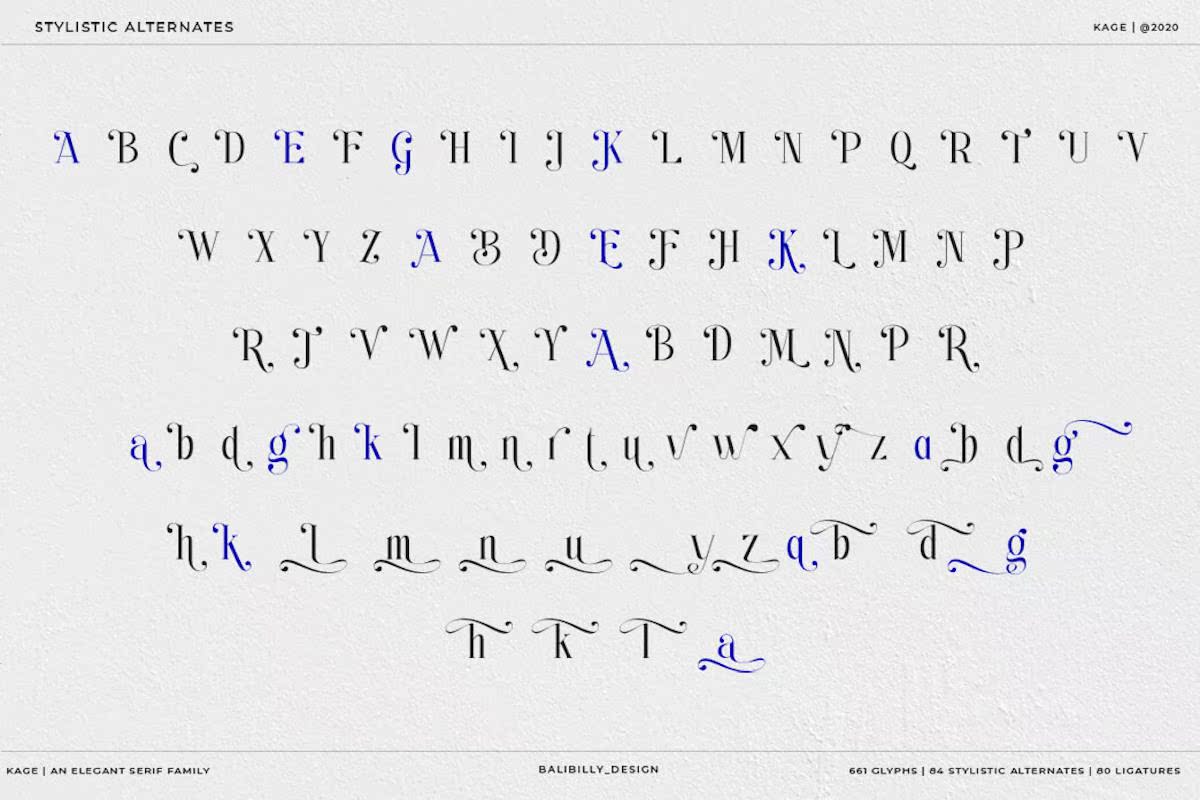 STYLISTIC ALTERNATES KAGE | @2020
A B C D E F G H I J K L M N P Q R T U V
W X Y Z A B D E F H K L M N P
R T V W X Y A B D M N P R
a b d g h k l m n r t u v w x y z a b d g
h k l m n u y z a b d g
h k l a
KAGE | AN ELEGANT SERIF FAMILY BALIBILLY_DESIGN 661 GLYPHS | 84 STYLISTIC ALTERNATES | 80 LIGATURES